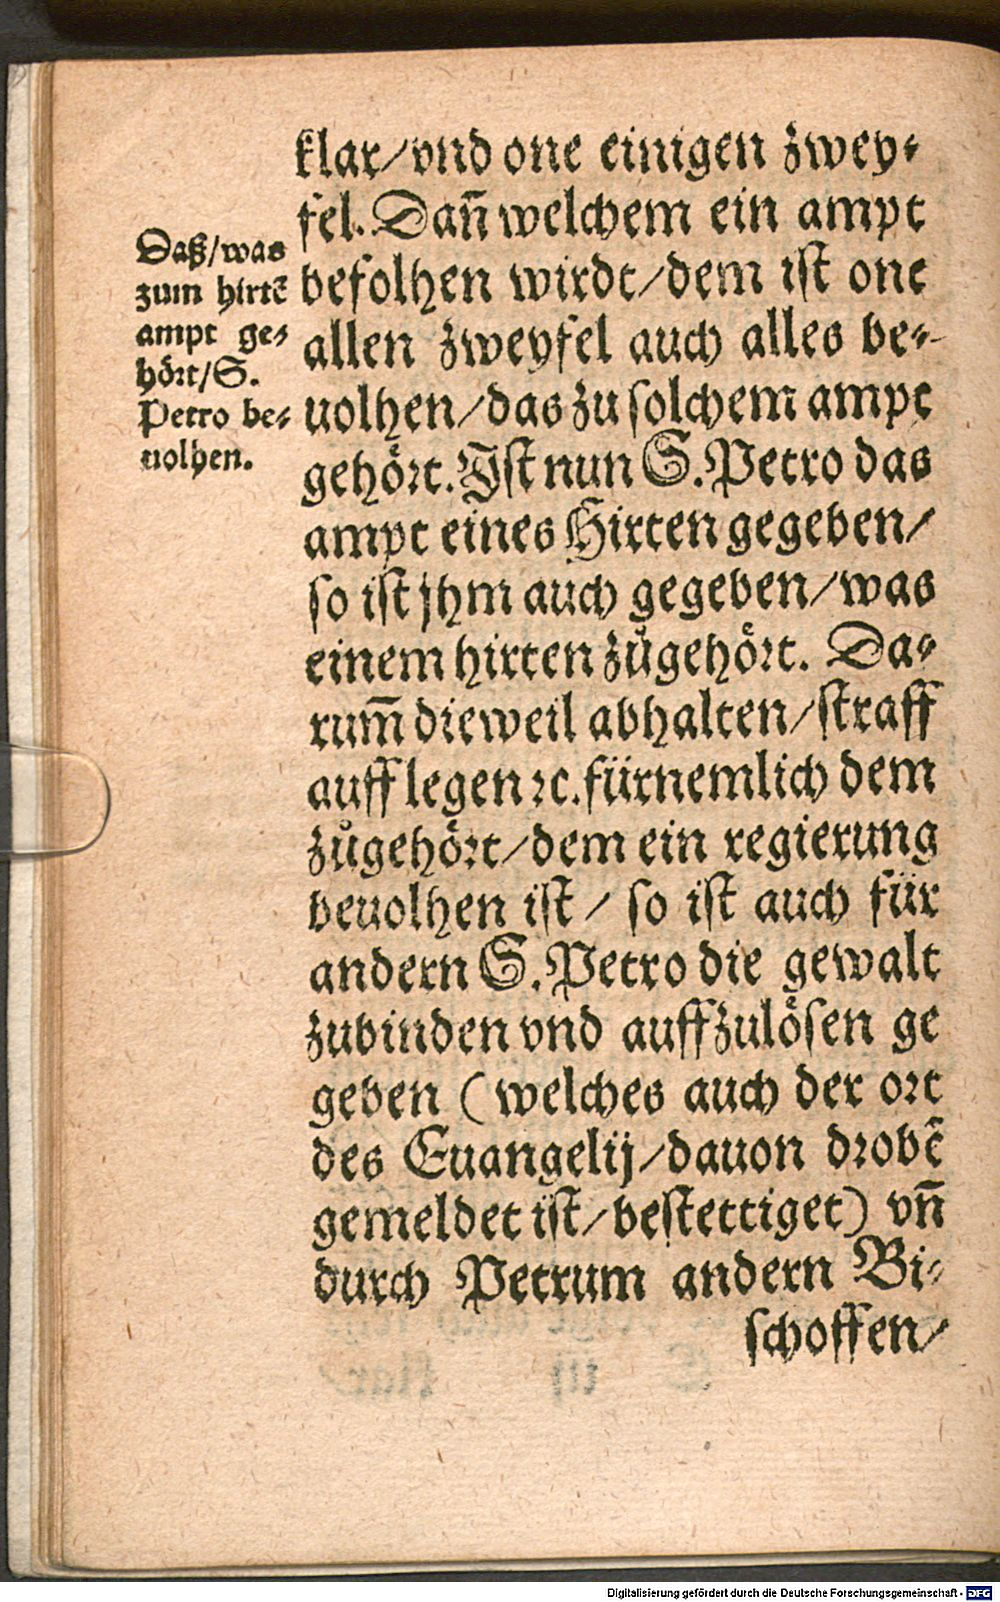 Daß/was
zum hirtē
ampt ge-
hört/S.
Petro be-
uolhen.
klar/vnd one einigen zwey-
fel. Dañ welchem ein ampt
befolhen wirdt/dem ist one
allen zweyfel auch alles be-
uolhen/das zu solchem ampt
gehört. Ist nun S. Petro das
ampt eines Hirten gegeben/
so ist jhm auch gegeben/was
einem hirten zůgehört. Da-
rum̄ dieweil abhalten/straff
auff legen ꝛc. fürnemlich dem
zůgehört/dem ein regierung
beuolhen ist/ so ist auch für
andern S. Petro die gewalt
zubinden vnd auffzulösen ge
geben (welches auch der ort
des Euangelij/dauon drobē
gemeldet ist/bestettiget) vñ
durch Petrum andern Bi-
schoffen/
Digitalisierung gefördert durch die Deutsche Forschungsgemeinschaft - DFG